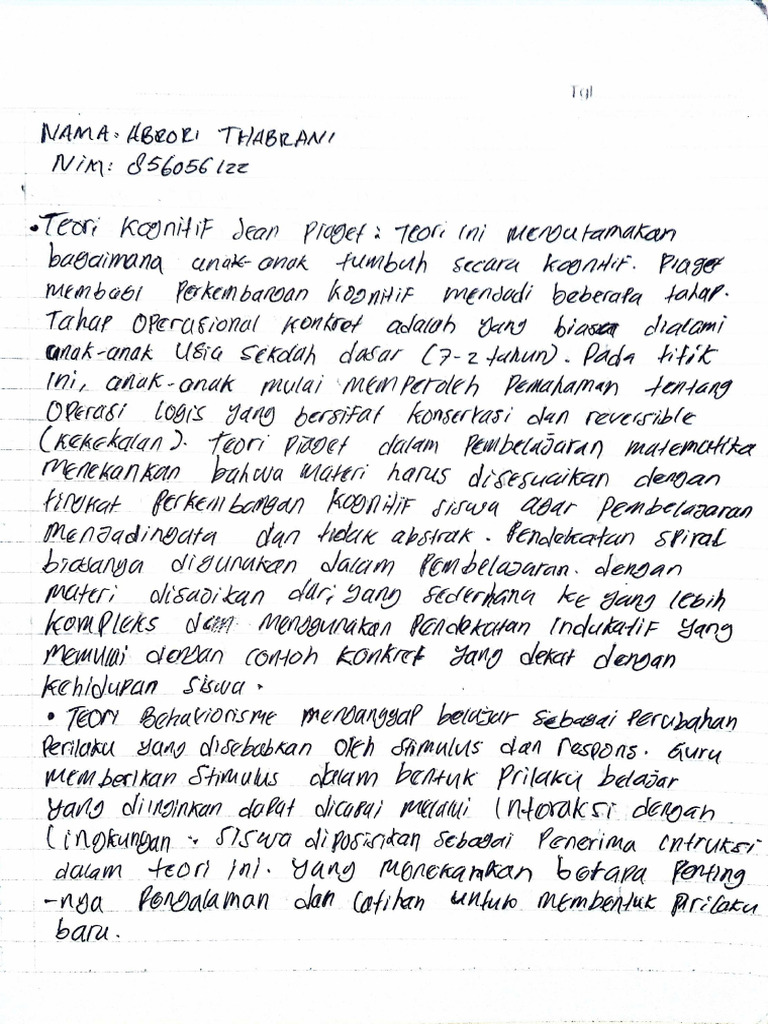 Tgl
NAMA: ABRORI THABRANI
NIM: 856056122
• Teori Kognitif Jean Piaget: Teori ini mengutamakan
bagaimana anak-anak tumbuh secara kognitif. Piaget
membagi perkembangan kognitif menjadi beberapa tahap.
Tahap operasional konkret adalah yang biasa dialami
anak-anak usia sekolah dasar (7-2 tahun). Pada titik
ini, anak-anak mulai memperoleh pemahaman tentang
operasi logis yang bersifat konservasi dan reversible
(kekekalan). Teori piaget dalam pembelajaran matematika
menekankan bahwa materi harus disesuaikan dengan
tingkat perkembangan kognitif siswa agar pembelajaran
menjadingata dan tidak abstrak. Pendekatan spiral
biasanya digunakan dalam pembelajaran. dengan
materi disajikan dari yang sederhana ke yang lebih
kompleks dan menggunakan pendekatan indukatif yang
memulai dengan contoh konkret yang dekat dengan
kehidupan siswa.
• Teori Behaviorisme menganggap belajar sebagai perubahan
perilaku yang disebabkan oleh stimulus dan respons. Guru
memberikan stimulus dalam bentuk prilaku belajar
yang diinginkan dapat dicapai melalui Intoraksi dengan
lingkungan. siswa diposisikan sebagai penerima intruksi
dalam teori ini. yang menekankan betapa penting
-nya pengalaman dan latihan untuk membentuk prilaku
baru.